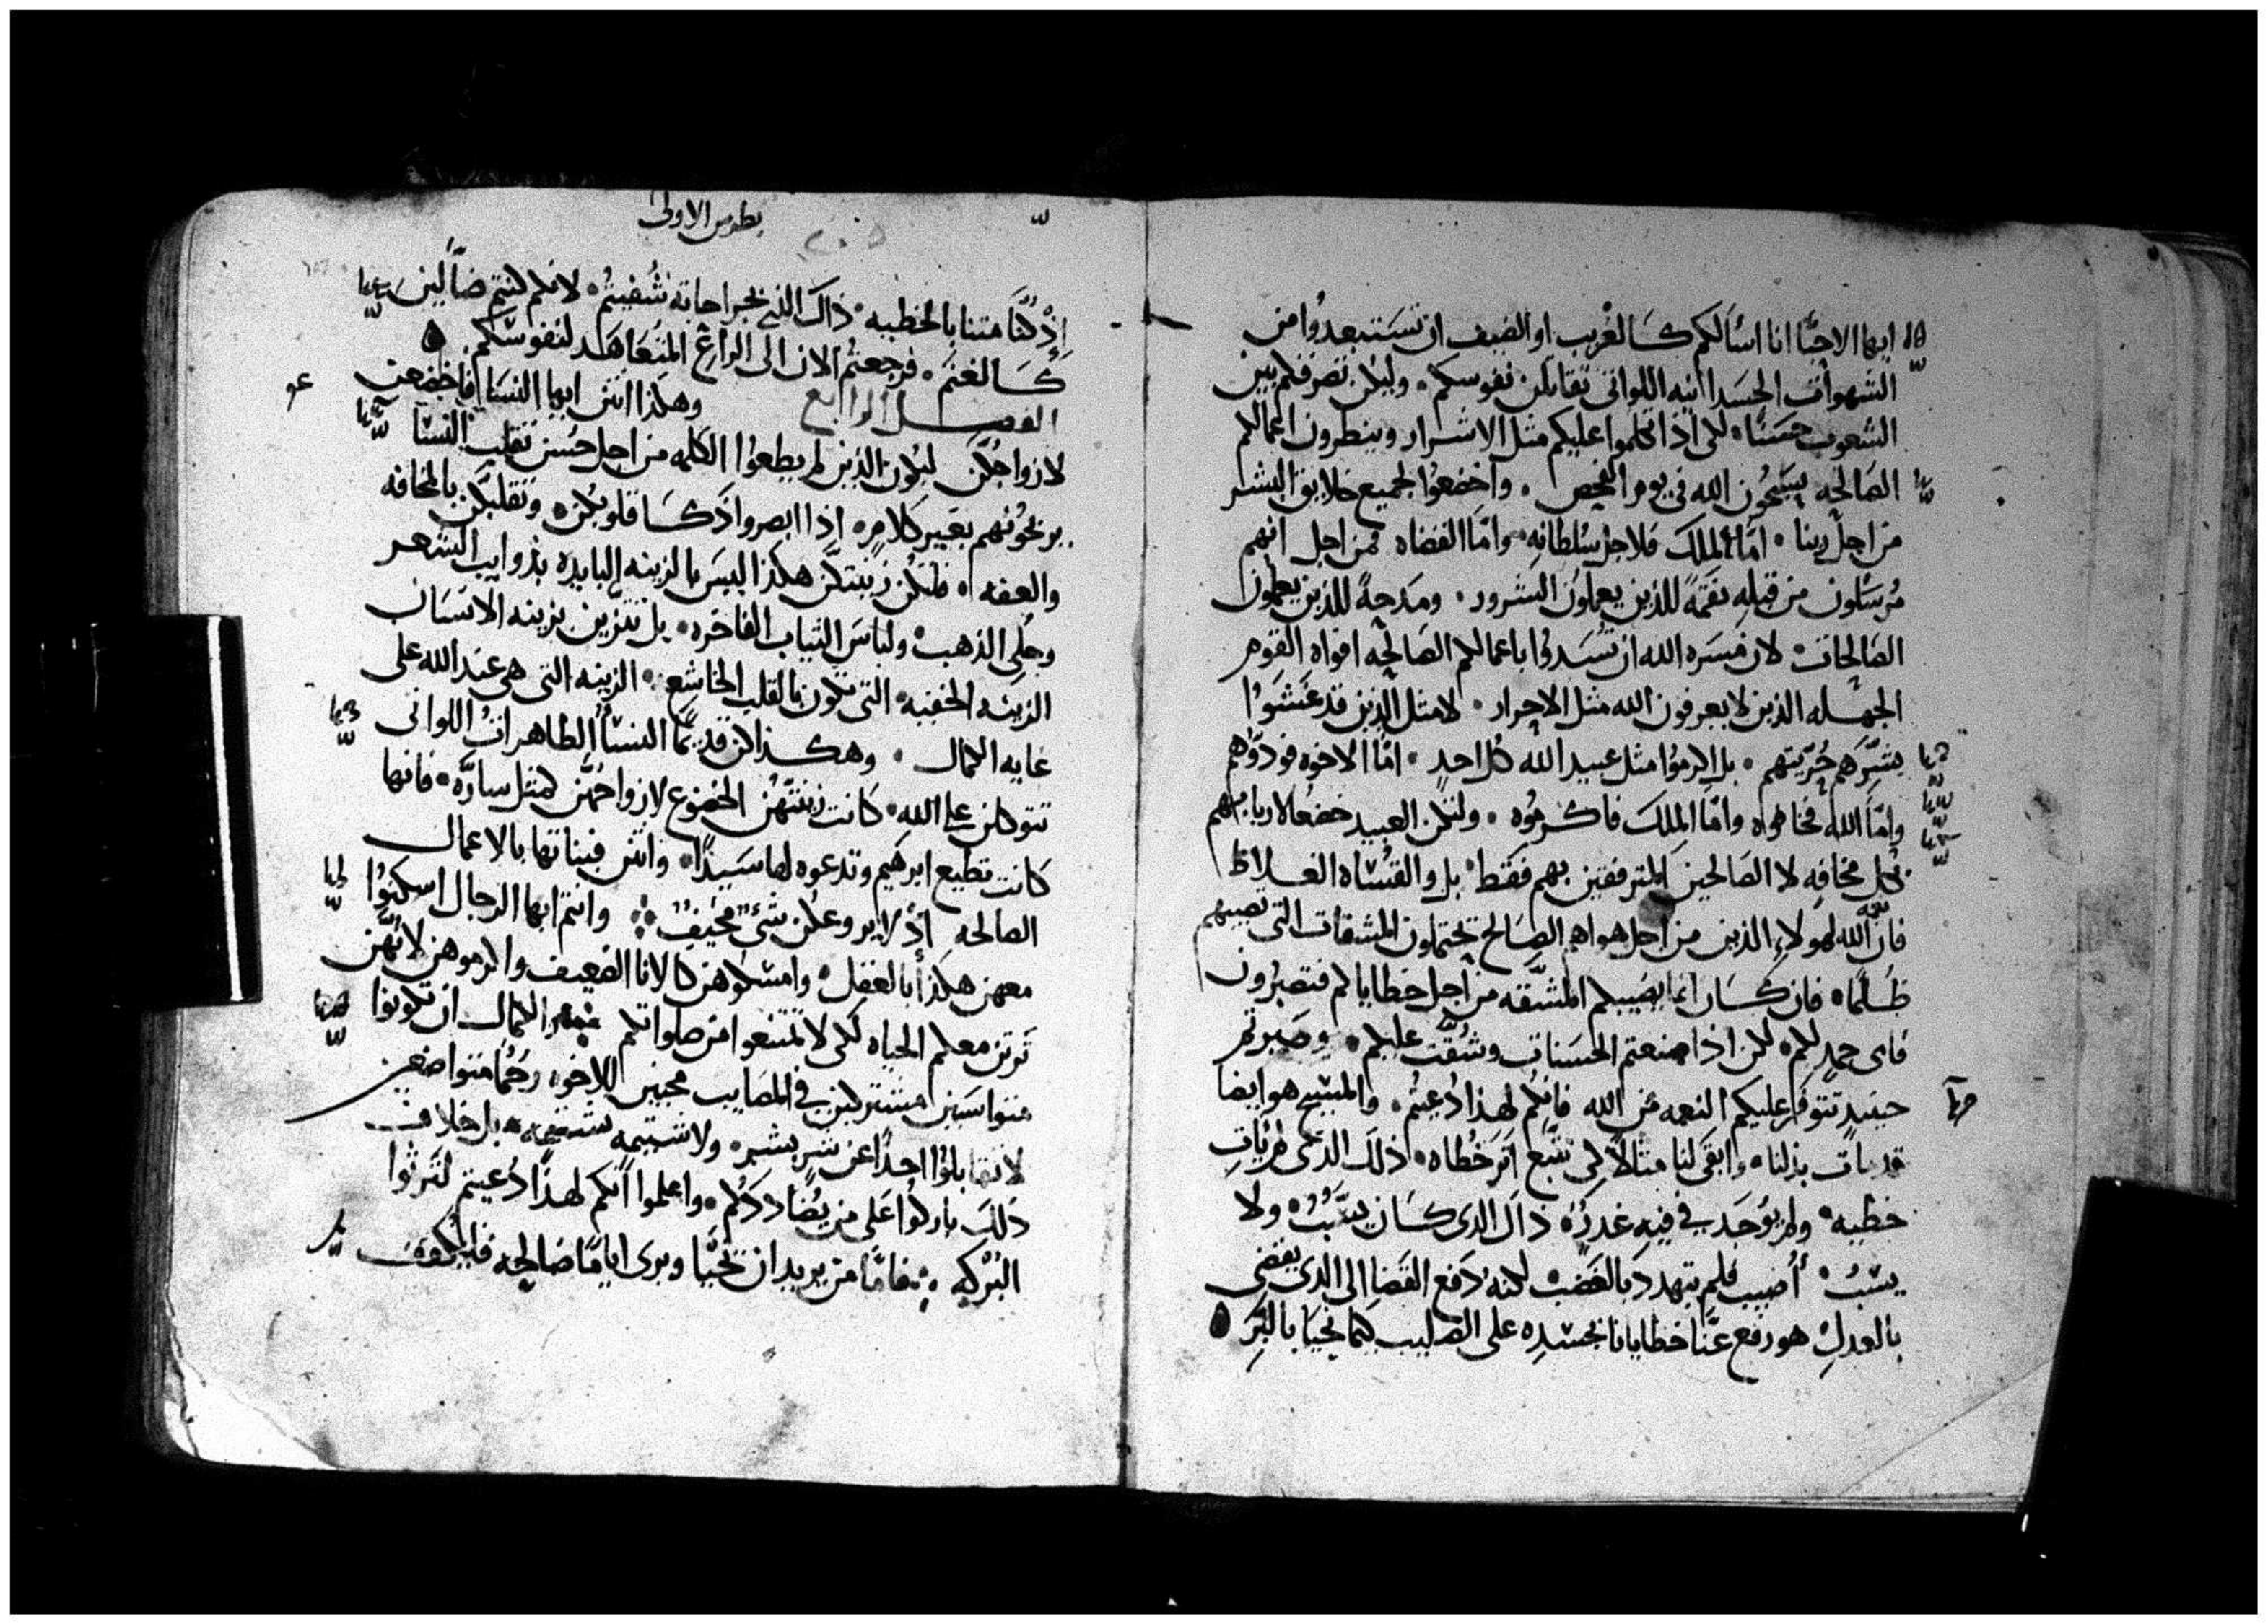 ايها الاحبا انا اسالكم كالغريب او الضيف ان تستبعدوا من
الشهوات الجسدانيه اللواتي تقاتلن نفوسكم وليكن تصرفكم بين
الشعوب حسنا لكي اذا تكلموا عليكم مثل الاشرار وينظرون اعمالكم
الصالحه يسبحون الله في يوم الفحص واخضعوا لجميع خلايق البشر
من اجل ربنا اما الملك فلاجل سلطانه واما القضاه فمن اجل انهم
مرسلون من قبله نقمة للذين يعملون الشرور ومدحة للذين يعملون
الصالحات لان مسره الله ان تسدوا باعمالكم الصالحه افواه القوم
الجهله الذين لا يعرفون الله مثل الاحرار لا مثل الذين قد غشوا
بشرهم حريتهم بل اكرموا مثل عبيد الله كل احد اما الاخوه فودوهم
واما الله فخافوه واما الملك فاكرموه ولتكن العبيد خضعا لاربابهم
بكل مخافه لا الصالحين المترفقين بهم فقط بل والقساه الغلاظ
فان الله لهولاء الذين من اجل هواهم الصالح يحتملون المشقات التي تصيبهم
ظلما فان كان انما يصيبكم المشقه من اجل خطاياكم فتصبرون
فاى حمد لكم لكن اذا صنعتم الحسنات وشقت عليكم وصبرتم
حينيذ تتوفر عليكم النعمه من الله فانكم لهذا دعيتم والمسيح هو ايضا
قد مات بدلنا وابقى لنا مثالا لكي نتبع اثر خطاه ذلك الذي لم يات
خطيه ولم يوجد في فيه غدر ذاك الذي كان يسب ولا
يسب اصيب فلم يتهدد بالغضب لكنه دفع القضا الى الذي يقضي
بالعدل هو رفع عنا خطايانا بجسده على الصليب كما نحيا بالبر
بطرس الاولى
٢٠٥
اذ كنا متنا بالخطيه ذاك الذي بجراحاته شفيتم لانكم كنتم ضالين
كالغنم فرجعتم الان الى الراعي المتعاهد لنفوسكم
الفصل الرابع وهكذا انتن ايها النسا فاخضعن
لازواجكن ليكون الذين لم يطيعوا الكلمه من اجل حسن تقلب النسا
يربحونهم بغير كلام اذا ابصروا ذكا قلوبكن وتقلبكن بالمخافه
والعفه فلتكن زينتكن هكذا ليس بالزينه البايده بذوايب الشعر
وحلي الذهب ولباس الثياب الفاخره بل تتزين بزينه الانسان
الزينه الخفيه التي تكون بالقلب الخاشع الزينه التي هي عند الله على
غايه الكمال وهكذا كن قديما النسا الطاهرات اللواتي
تتوكلن على الله كانت زينتهن الخضوع لازواجهن كمثل ساره فانها
كانت تطيع ابرهيم وتدعوه لها سيدا وانتن فبناتها بالاعمال
الصالحه اذ لا يروعكن شي مخيف وانتم ايها الرجال اسكنوا
معهن هكذا بالعقل وامسكوهن كالانا الضعيف واكرموهن لانهن
ترثن معكم الحياه لكي لا تمتنعوا من صلواتكم الكمال ان تكونوا
متواسين مشتركين في المصايب محبين للاخوه رحما متواضعين
لا تقابلوا احدا عن شر بشر ولا شتيمه بشتيمه بل خلاف
ذلك باركوا على من يضاددكم واعلموا انكم لهذا دعيتم لترثوا
البركه فاما من يريد ان يحيا ويرى اياما صالحه فليكفف